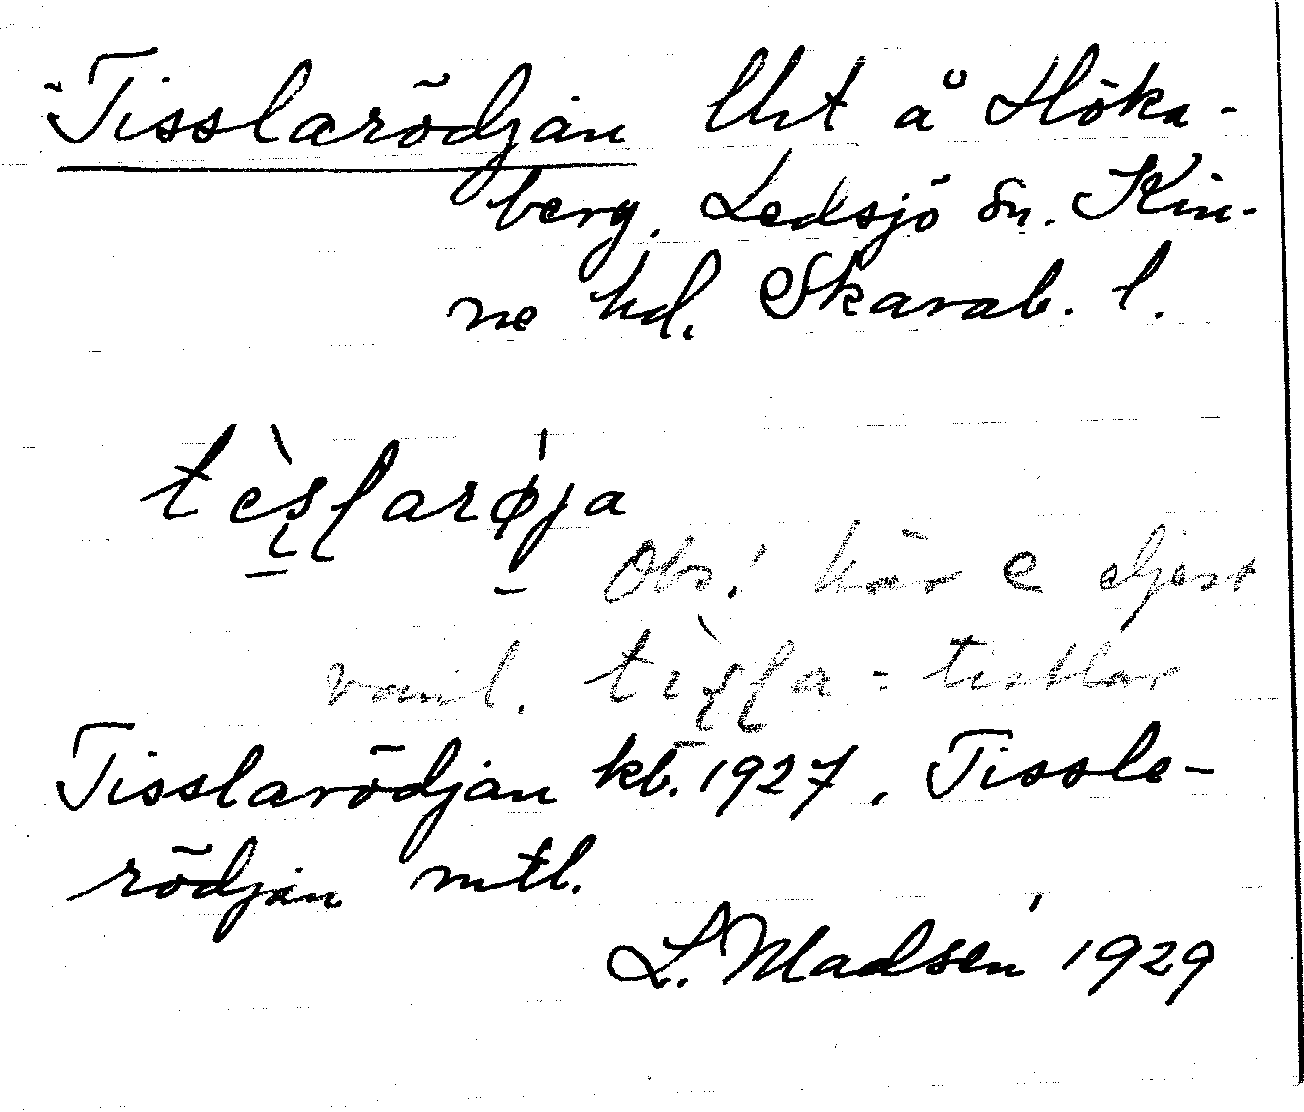 Tisslarödjan lht å Höka-
berg. Ledsjö sn. Kin-
ne hd. Skarab. l.
tèʂɭarøja
Obs! här e eljest
vanl. tìʂɭa = tistlar
Tisslarödjan kb. 1927, Tissle-
rödjan mtl.
L. Madsén 1929